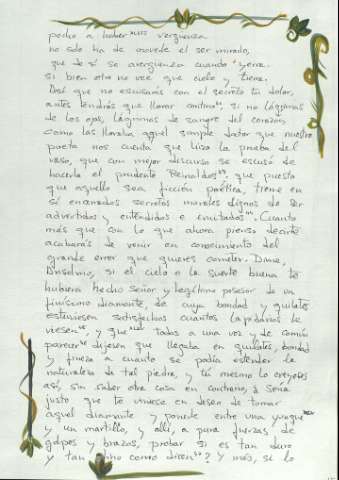 pecho a haber vergüenza
no solo ha de moverle el ser mirado,
que de sí se avergüenza cuando yerra,
si bien otro no vee que cielo y tierra.
Así que no escusarás con el secreto tu dolor,
antes tendrás que llorar contino, si no lágrimas
de los ojos, lágrimas de sangre del corazón,
como las lloraba aquel simple doctor que nuestro
poeta nos cuenta que hizo la prueba del
vaso, que con mejor discurso se escusó de
hacerla el prudente Reinaldos, que puesto
que aquello sea ficción poética, tiene en
sí encerrados secretos morales dignos de ser
advertidos y entendidos e imitados. Cuanto
más que con lo que ahora pienso decirte
acabarás de venir en conocimiento del
grande error que quieres cometer. Dime,
Anselmo, si el cielo o la suerte buena te
hubiera hecho señor y legítimo posesor de un
finísimo diamante, de cuya bondad y quilates
estuviesen satisfechos cuantos lapidarios le
viesen, y que todos a una voz y de común
parecer dijesen que llegaba en quilates, bondad
y fineza a cuanto se podía estender la
naturaleza de tal piedra, y tú mesmo lo creyeses
así, sin saber otra cosa en contrario, ¿sería
justo que te viniese en deseo de tomar
aquel diamante y ponerle entre una yunque
y un martillo, y allí, a pura fuerza, de
golpes y brazos, probar si es tan duro
y tan fino como dicen? Y más, si lo